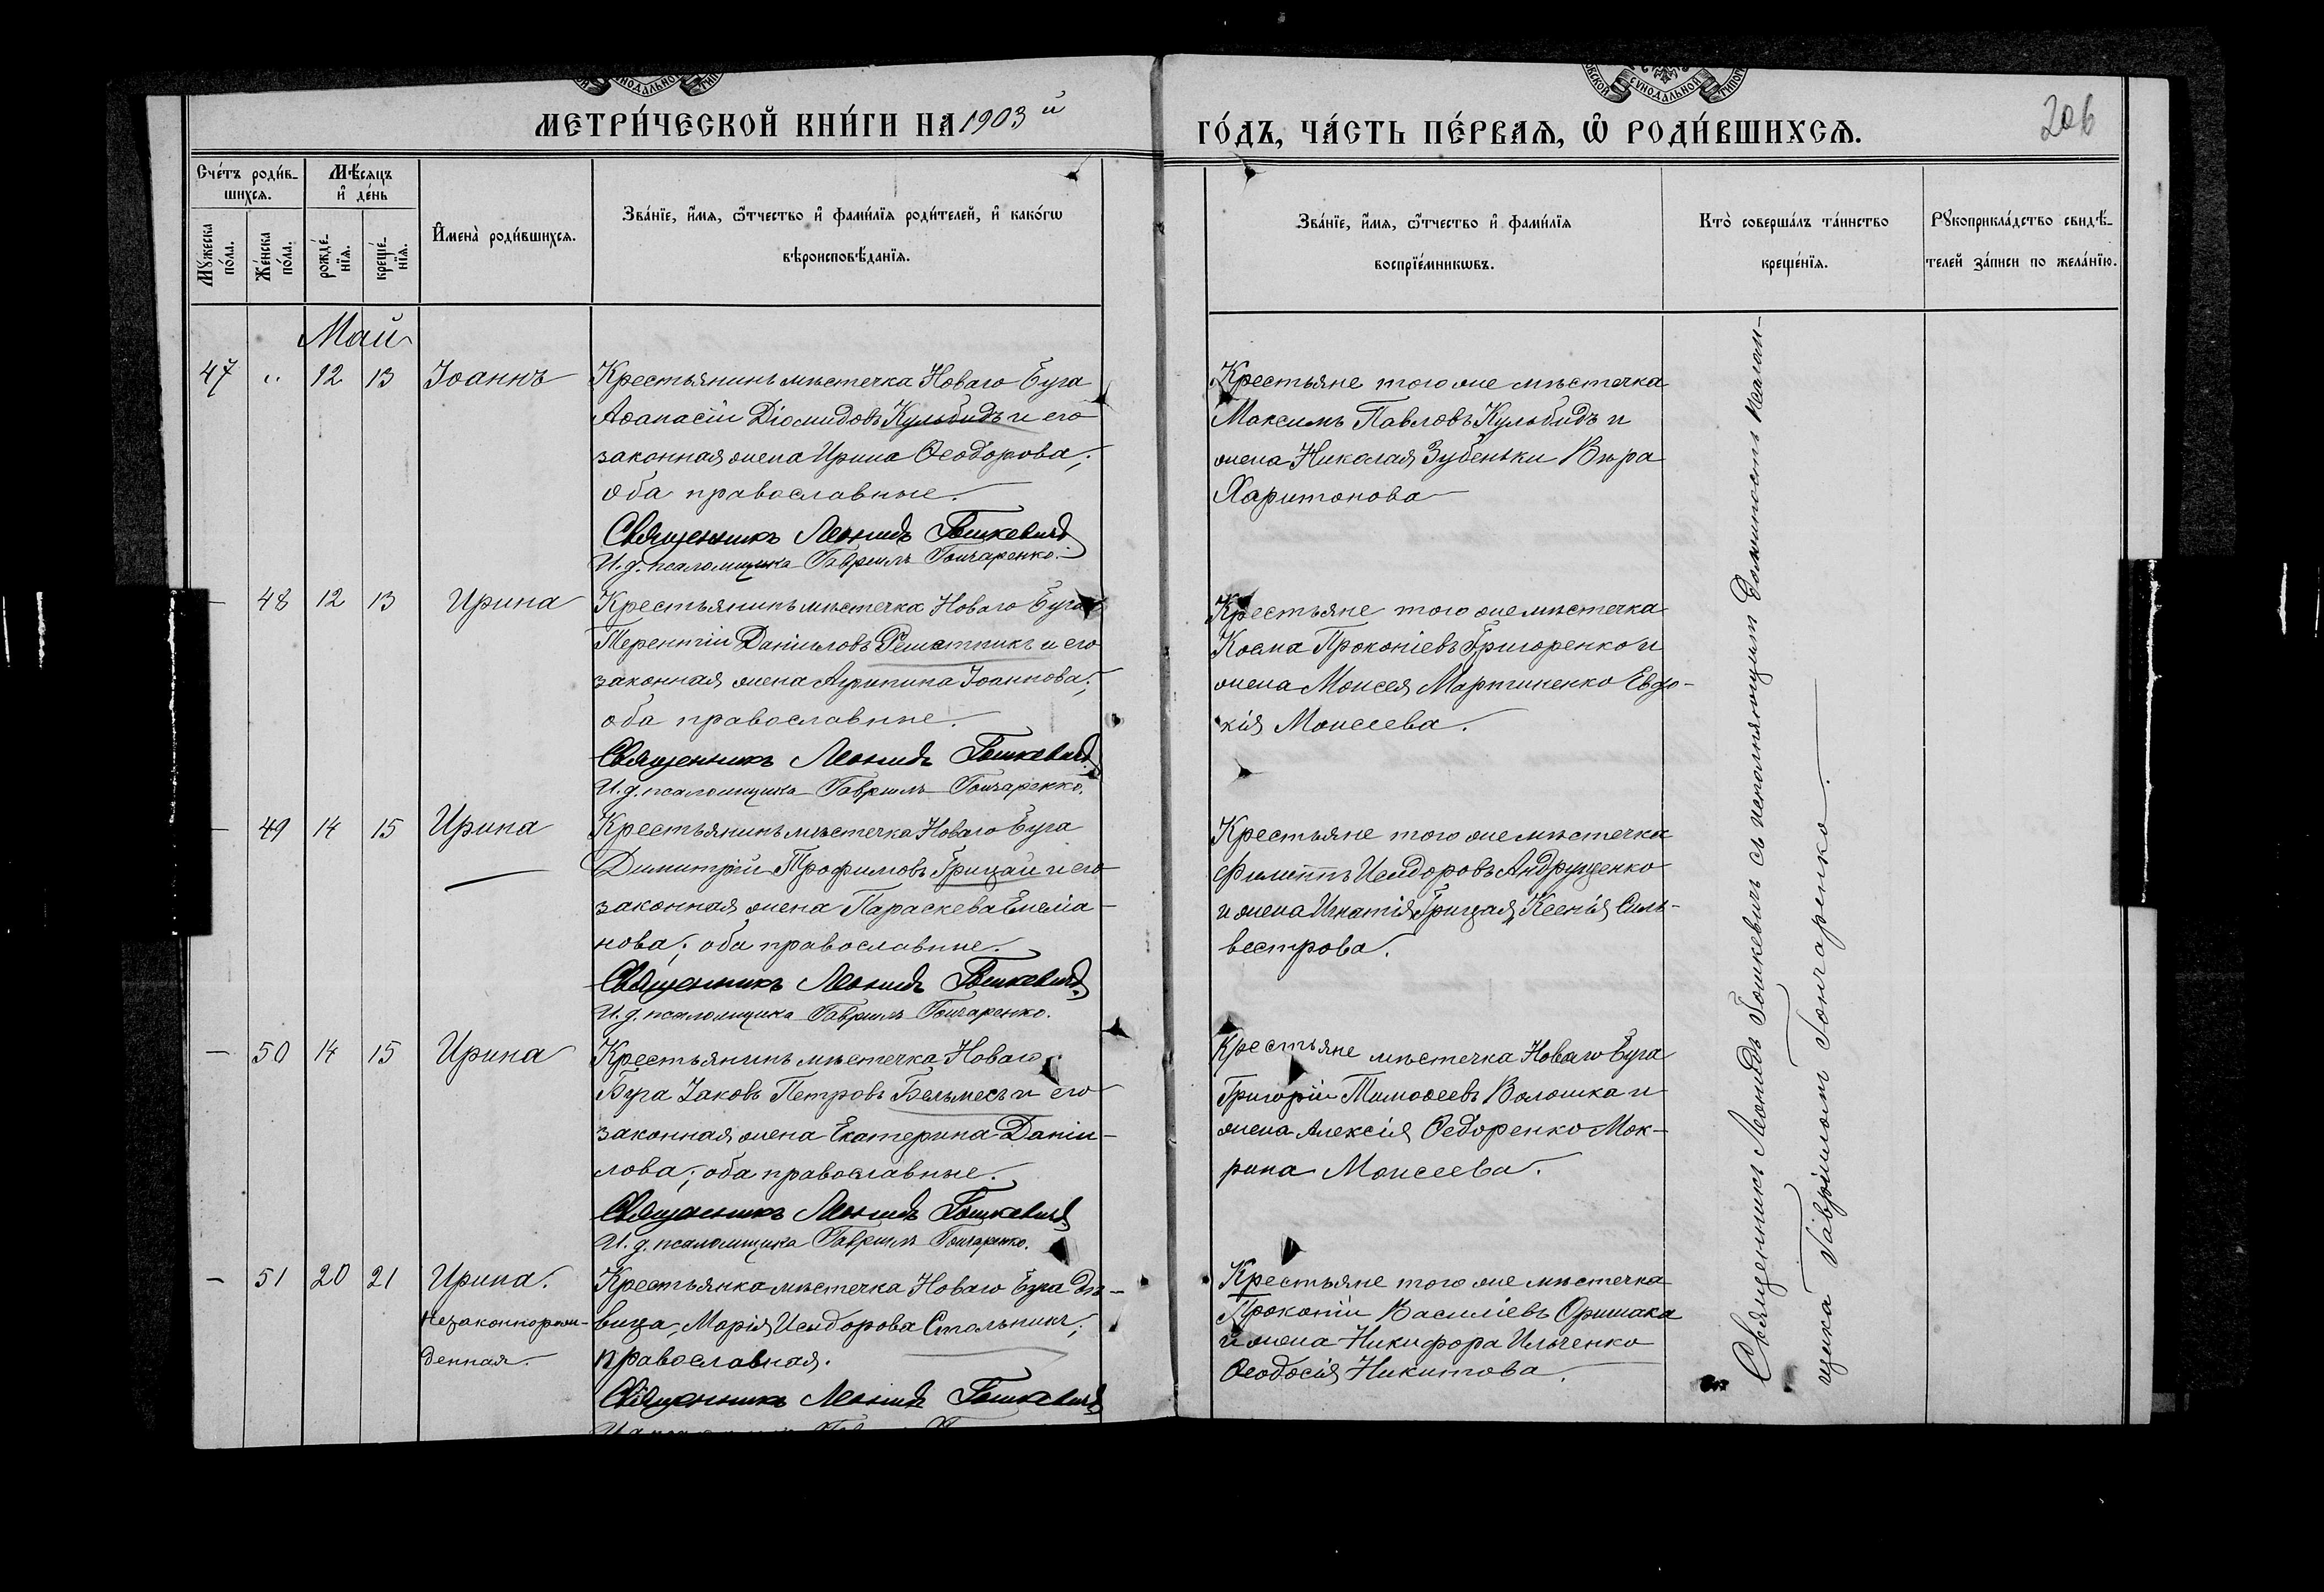 МЕТРИ́ЧЕСКОЙ КНИ́ГИ НА 1903 й
ГО́ДЪ, ЧА́СТЬ ПЕ́РВАѦ, Ѽ РОДИ́ВШИХСѦ.
206
Сче́тъ роди́в-
шихсѧ.
Мѣ́сѧцъ
и҆ де́нь
Мꙋ́жеска
по́ла.
Же́нска
по́ла.
рожде́-
нїѧ.
креще́-
нїѧ.
И҆мена̀ роди́вшихсѧ.
Зва́нїе, и҆́мѧ, ѻ҆́тчество и҆ фами́лїѧ роди́телей, и҆ како́гѡ
вѣроисповѣ́данїѧ.
Зва́нїе, и҆́мѧ, ѻ҆́тчество и҆ фами́лїѧ
воспрїе́мникѡвъ.
Кто̀ соверша́лъ та́инство
креще́нїѧ.
Рꙋкоприкла́дство свидѣ́-
телей за́писи по жела́нїю.
Май
47 " 12 13 Іоаннъ
Крестьянинъ мѣстечка Новаго Буга
Аѳанасій Діомидовъ Кульбидъ и его
законная жена Ирина Ѳеодорова;
оба православные.
Священникъ Леонидъ Гошкевичъ
И. д. псаломщика Гавріилъ Гончаренко.
Крестьяне того же мѣстечка
Максимъ Павловъ Кульбидъ и
жена Николая Зубенькиı Вѣра
Харитонова
— 48 12 13 Ирина
Крестьянинъ мѣстечка Новаго Буга
Терентій Даніиловъ Решетникъ и его
законная жена Агрипина Іоаннова;
оба православные.
Священникъ Леонидъ Гошкевичъ
И. д. псаломщика Гавріилъ Гончаренко.
Крестьяне того же мѣстечка
Косма Прокопіевъ Григоренко и
жена Моисея Мартиненко Евдо-
кія Моисеева.
— 49 14 15 Ирина
Крестьянинъ мѣстечка Новаго Буга
Димитрій Трофимовъ Грицай и его
законная жена Параскева Емелiа-
нова; оба православные.
Священникъ Леонидъ Гошкевичъ
И. д. псаломщика Гавріилъ Гончаренко.
Крестьяне того же мѣстечка
Филиппъ Исидоровъ Андрущенко
и жена Игнатія Грицая Ксенія Силь-
вестрова.
— 50 14 15 Ирина
Крестьянинъ мѣстечка Новаго
Буга Іаковъ Петровъ Бельмесъ и его
законная жена Екатерина Даніи-
лова; оба православные.
Священникъ Леонидъ Гошкевичъ
И. д. псаломщика Гавріилъ Гончаренко.
Крестьяне мѣстечка Новаго Буга
Григорій Тимоѳеевъ Волошка и
жена Алексія Ѳедоренко Мок-
рина Моисеева.
— 51 20 21 Ирина.
Незаконнорож-
денная.
Крестьянка мѣстечка Новаго Буга дѣ-
вица, Марія Исидорова Стольникъ;
православная.
Священникъ Леонидъ Гошкевичъ
Крестьяне того же мѣстечка
Прокопій Василіевъ Оришака
и жена Никифора Ильченко
Ѳеодосія Никитова.
Священникъ Леонидъ Гошкевичъ съ исполняющим должность псалом-
щика Гавріилом Гончаренко.